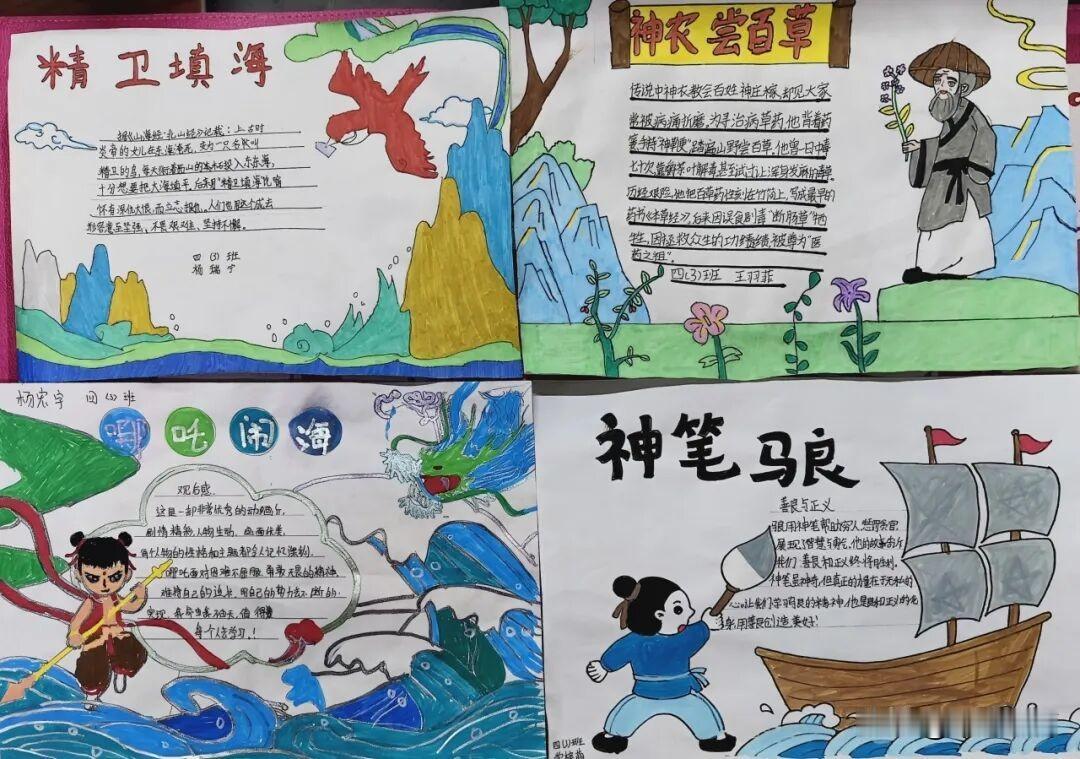 精卫填海
据《山海经·北山经》记载：上古时
炎帝的女儿在东海淹死，变为一只名叫
精卫的鸟，每天衔着西山的 石投入东东海，
十分想要把大海填平，后来用"精卫填海"比喻
怀有深仇大恨，而立志报仇。人们也 成去
形容意志坚强，不畏艰难，坚持不懈。
四(3)班
杨 宁
神农尝百草
传说中神农教会百姓种庄稼，却见大家
常被病痛折磨。为寻治病草药，他背着药
篓手持"神鞭"踏遍山野尝百草，他曾一日中毒
七十次靠嚼茶叶解毒甚至试过让浑身发麻的毒草
历经艰险，他把百草药性刻在竹简上，写成最早的
药书《本草经》，后来因误食剧毒"断肠草"牺
牲，因拯救众生的功绩 被尊为"医
药之祖"。
四(3)班 王羽菲
杨宏宇 四(3)班
哪吒闹海
观后感
这是一部非常优秀的动画片，
剧情精彩，人物生动，画面优美，
每个人物的性格和主题都令人记忆深刻，
哪吒面对困难不屈服，勇敢无畏的精神
难得自己的 点，用自己的努力去不断的
实现， ，值得
每个人去学习！
神笔马良
善良与正义
马良用神笔帮助穷人，惩罚贪官
展现了智慧与勇气，他的故事告诉
我们，善良和正义终将胜利，
神笔虽神奇，但真正的力量在于无私的
心。让我们学习马良的精神，
用善良创造美好！
四(3)班